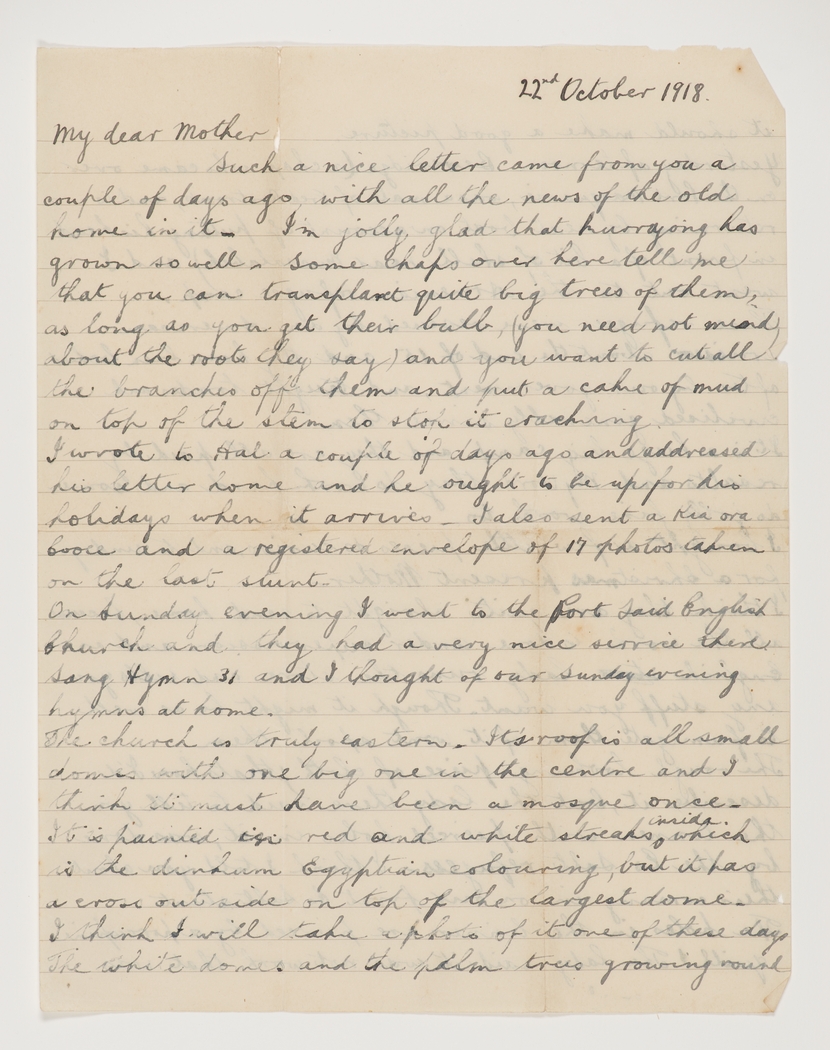 22nd October 1918.
My dear Mother
Such a nice letter came from you a
couple of days ago, with all the news of the old
home in it - I'm jolly glad that Kurrajong has
grown so well - Some chaps over here tell me
that you can transplant quite big trees of them,
as long as you get their bulb, (you need not mind
about the roots they say) and you want to cut all
the branches off them and put a cake of mud
on top of the stem to stop it cracking.
I wrote to Hal a couple of days ago and addressed
his letter home and he ought to be up for his
holidays when it arrives - I also sent a Kia ora
Cooee and a registered envelope of 17 photos taken
on the last stunt -
On Sunday evening I went to the Port Said English
Church and they had a very nice service there,
Sang Hymn 31 and I thought of our Sunday evening
hymns at home.
The church is truly eastern - It's roof is all small
domes with one big one in the centre and I
think it must have been a mosque once -
It is painted in red and white streaks inside, which
is the dinkum Egyptian colouring, but it has
a cross outside on top of the largest dome -
I think I will take a photo of it one of these days
The white domes and the palm trees growing round